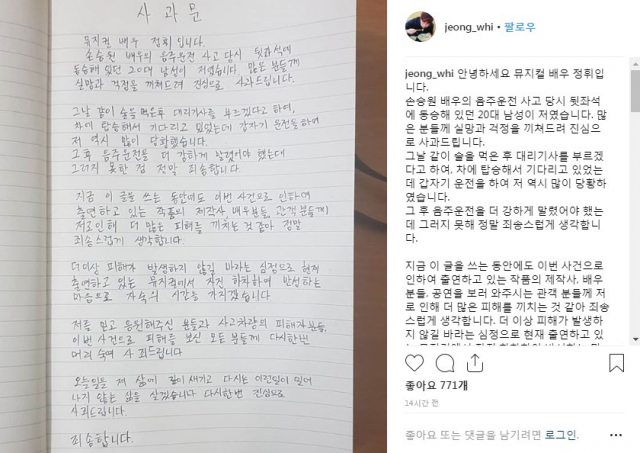 사과문
뮤지컬 배우 정휘 입니다.
손승원 배우의 음주운전 사고 당시 뒷좌석에
동승해 있던 20대 남성이 저였습니다. 많은 분들께
실망과 걱정을 끼쳐드려 진심으로 사과드립니다.
그날 같이 술을 먹은후 대리기사를 부르겠다고 하여,
차에 탑승해서 기다리고 있었는데 갑자기 운전을하여
저 역시 많이 당황했습니다.
그 후 음주운전을 더 강하게 말렸어야 했는데
그러지 못한 점 정말 죄송합니다.
지금 이 글을 쓰는 동안에도 이번 사건으로 인하여
출연하고 있는 작품의 제작사, 배우분들, 관객분들께
저로인해 더 많은 피해를 끼치는 것 같아 정말
죄송스럽게 생각합니다.
더이상 피해가 발생하지 않길 바라는 심정으로 현재
출연하고 있는 뮤지컬에서 자진 하차하여 반성하는
마음으로 자숙의 시간을 가지겠습니다
저를 믿고 응원해주신 분들과 사고차량의 피해자분들,
이번 사건으로 피해를 보신 모든 분들께 다시한번
머리 숙여 사죄드립니다
오늘일을 제 삶에 깊이 새기고 다시는 이런일이 일어
나지 않는 삶을 살겠습니다 다시한번 진심으로
사죄드립니다.
죄송합니다.
jeong_whi • 팔로우
jeong_whi 안녕하세요 뮤지컬 배우 정휘입
니다.
손승원 배우의 음주운전 사고 당시 뒷좌석
에 동승해 있던 20대 남성이 저였습니다. 많
은 분들께 실망과 걱정을 끼쳐드려 진심으
로 사과드립니다.
그날 같이 술을 먹은 후 대리기사를 부르겠
다고 하여, 차에 탑승해서 기다리고 있었는
데 갑자기 운전을 하여 저 역시 많이 당황하
였습니다.
그 후 음주운전을 더 강하게 말렸어야 했는
데 그러지 못해 정말 죄송스럽게 생각합니
다.
지금 이 글을 쓰는 동안에도 이번 사건으로
인하여 출연하고 있는 작품의 제작사, 배우
분들, 공연을 보러 와주시는 관객 분들께 저
로 인해 더 많은 피해를 끼치는 것 같아 죄송
스럽게 생각합니다. 더 이상 피해가 발생하
지 않길 바라는 심정으로 현재 출연하고 있
좋아요 771개
14시간 전
좋아요 또는 댓글을 남기려면 로그인.